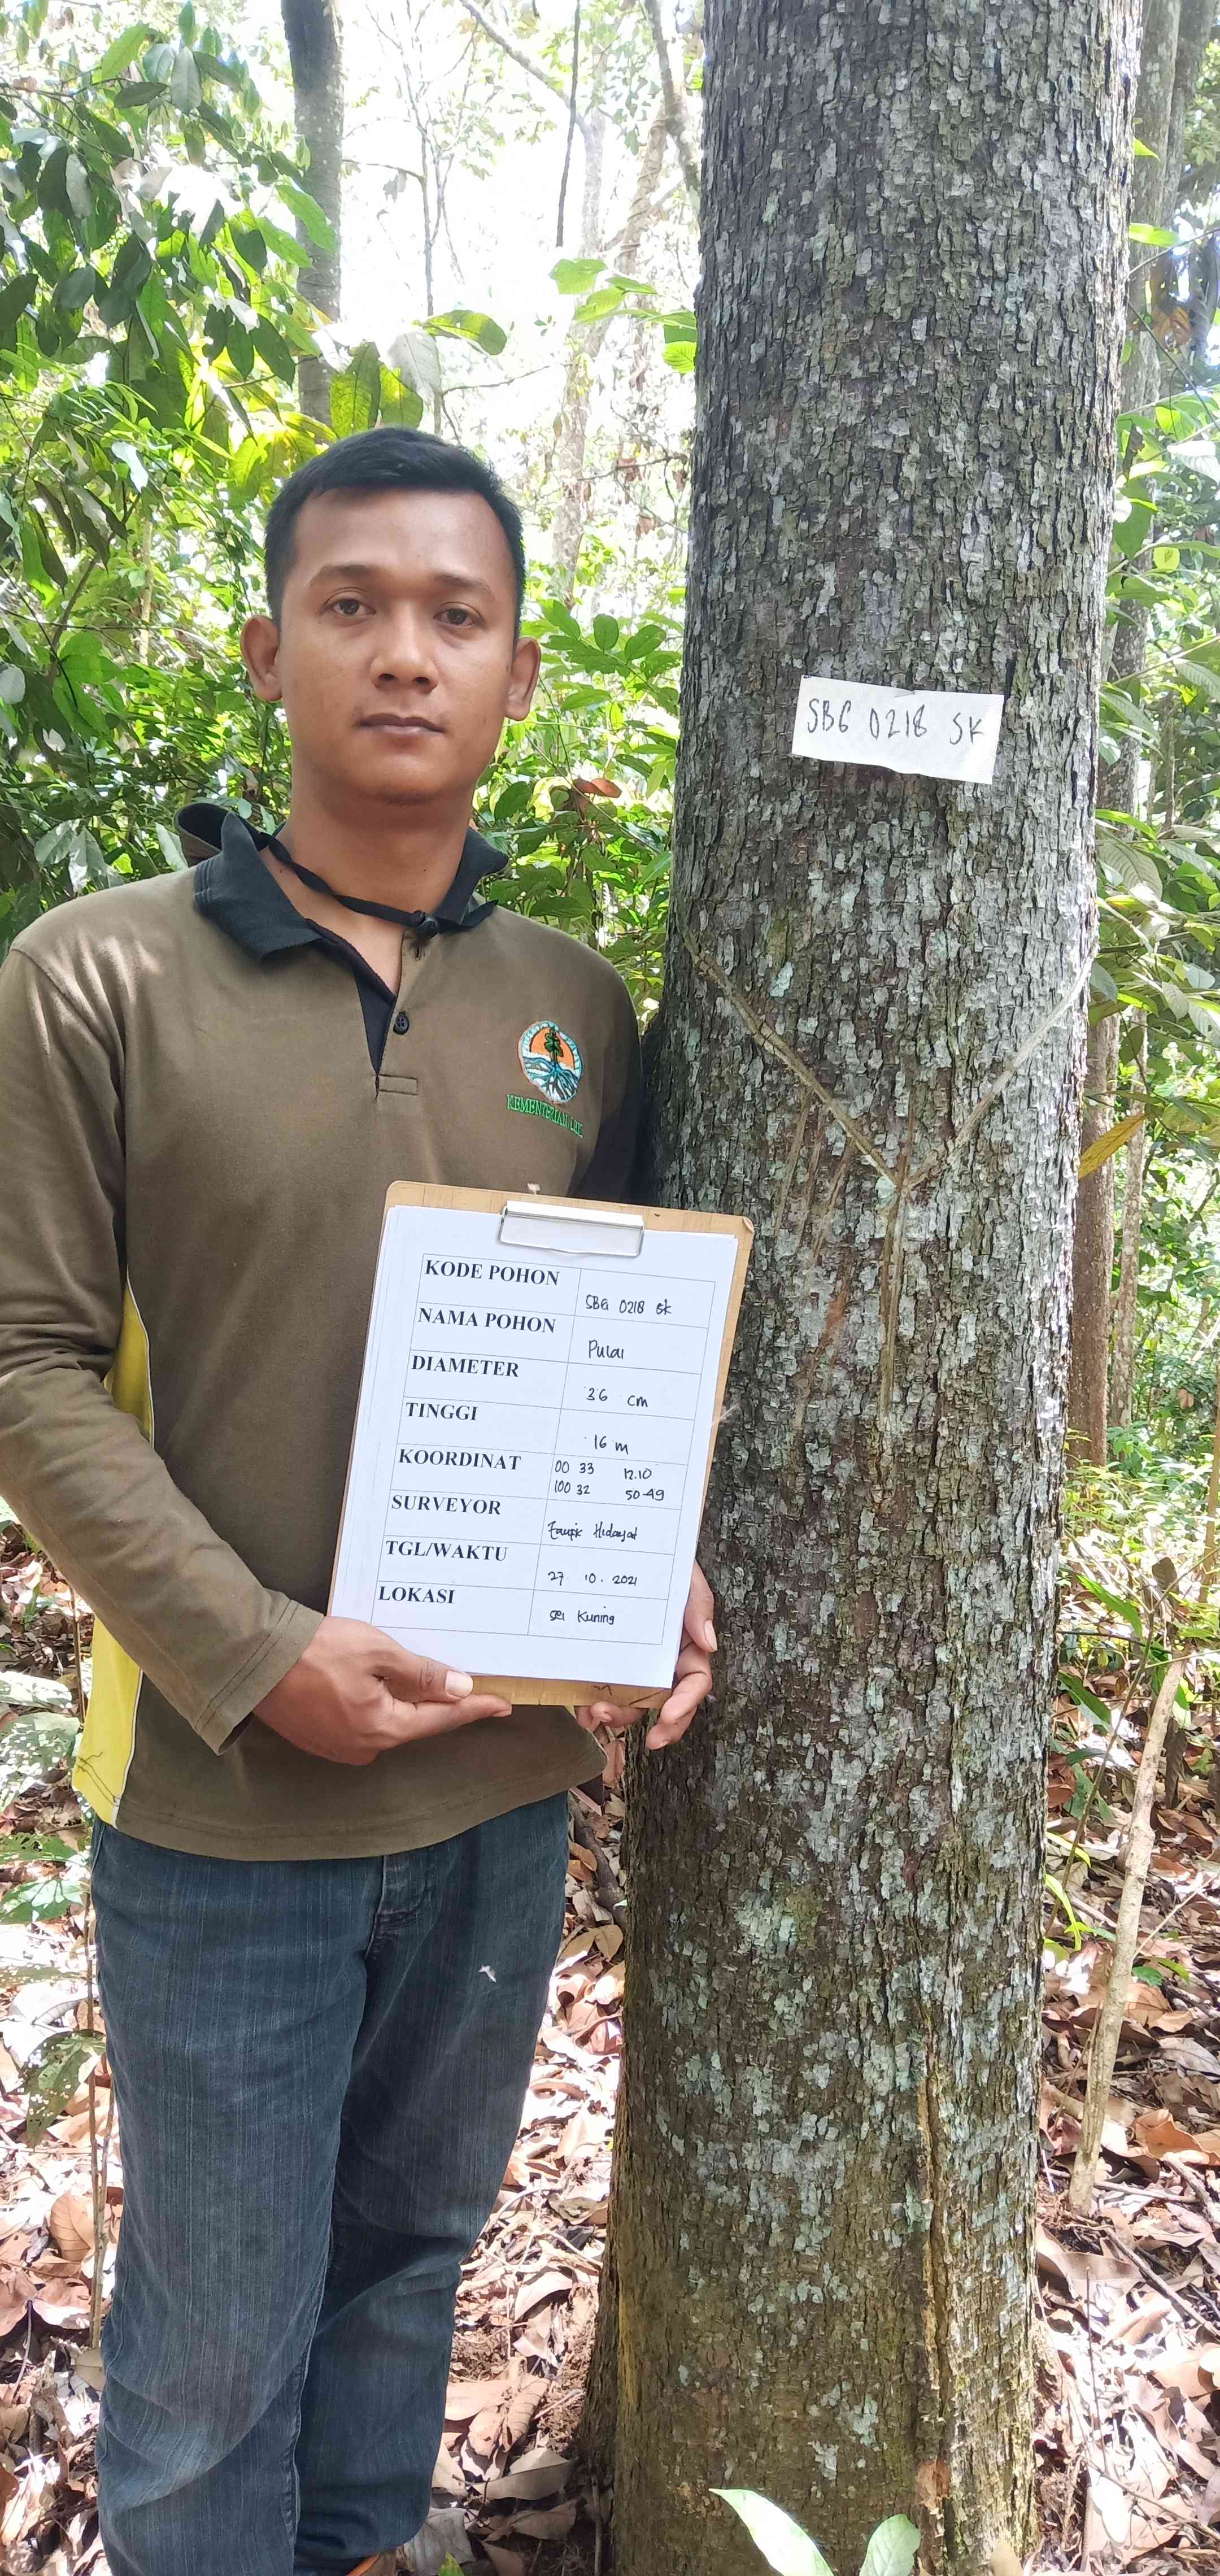 SBG 0218 SK
KEMENTERIAN LHK
KODE POHON SBG 0218 SK
NAMA POHON Pulai
DIAMETER 36 cm
TINGGI 16 m
KOORDINAT 00 33 12.10
100 32 50.49
SURVEYOR Taufik Hidayat
TGL/WAKTU 27 10. 2021
LOKASI Sei Kuning